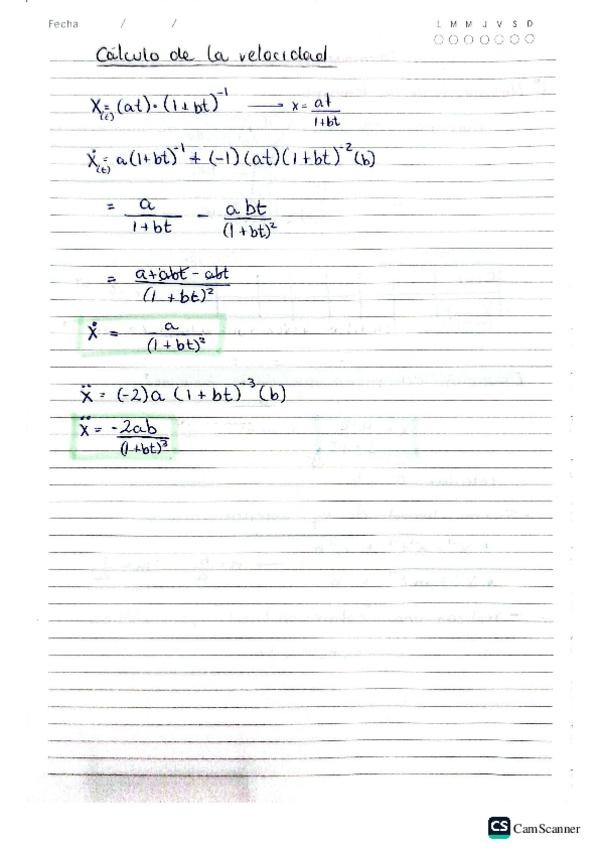 Fecha / / L M M J V S D
Cálculo de la velocidad
X(t) = (at)·(1+bt)⁻¹ → x = at/(1+bt)
ẋ(t) = a(1+bt)⁻¹ + (-1)(at)(1+bt)⁻²(b)
= a/(1+bt) - abt/(1+bt)²
= (a+abt-abt)/(1+bt)²
ẋ = a/(1+bt)²
ẍ = (-2)a (1+bt)⁻³(b)
ẍ = -2ab/(1+bt)³
CS CamScanner